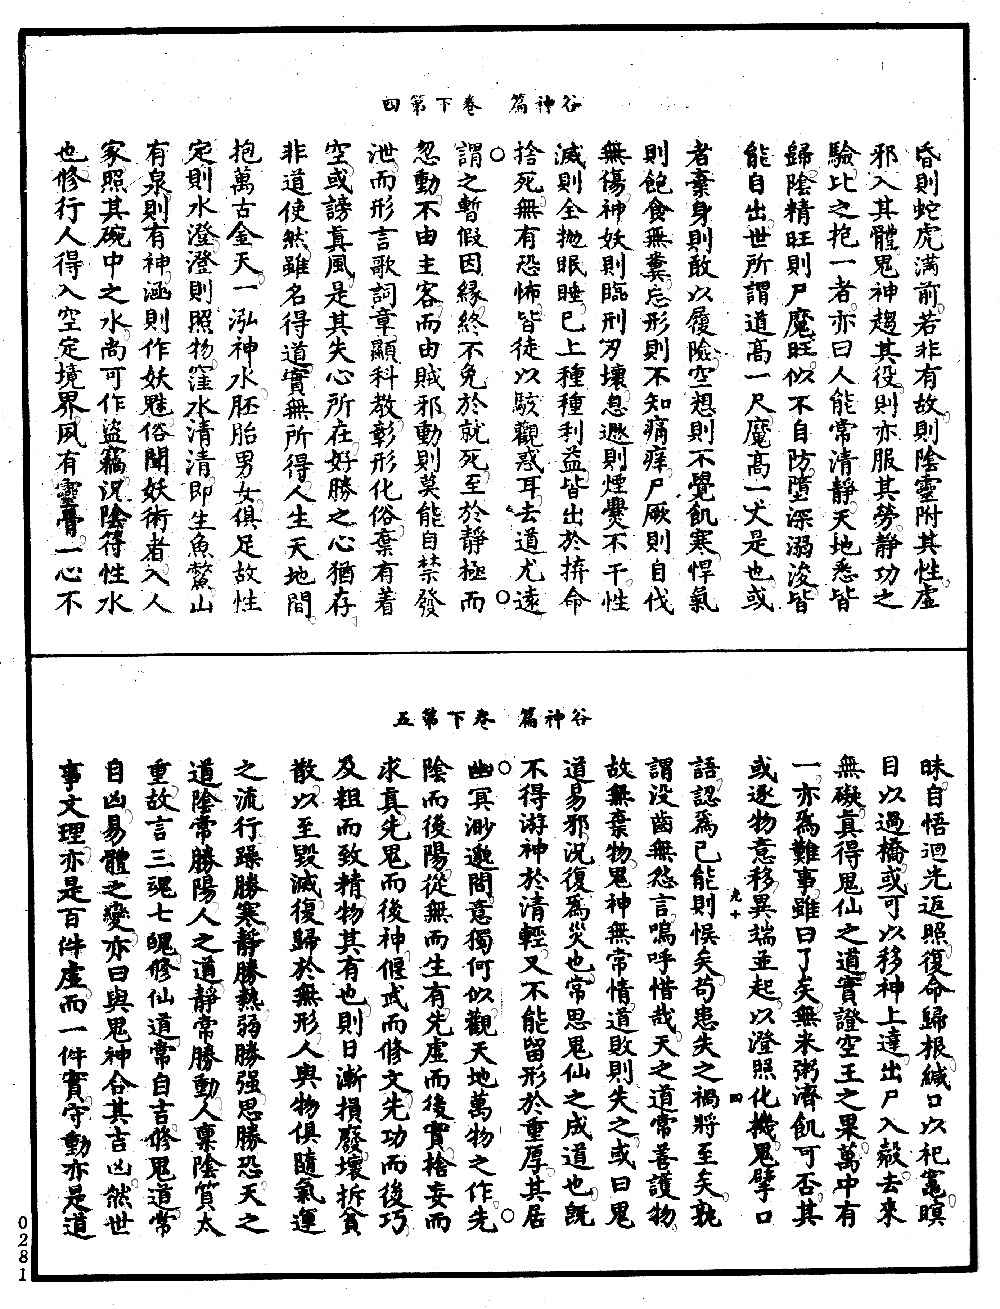 谷神篇　卷下第四
昏則蛇虎滿前若非有故則陰靈附其性虛
邪入其體鬼神趨其役則亦服其勞靜功之
驗比之抱一者亦曰人能常清靜天地悉皆
歸陰精旺則尸魔旺似不自防墮深溺浚皆
能自出世所謂道高一尺魔高一丈是也或
者棄身則敢以履險空想則不覺飢寒悍氣
則飽食無糞忘形則不知痛痒尸厥則自伐
無傷神妖則臨刑刃壞息遯則煙爨不干性
滅則全拋眠睡已上種種利益皆出於捹命
捨死無有恐怖皆徒以駭觀惑耳去道尤遠
謂之暫假因緣終不免於就死至於靜極而
忽動不由主客而由賊邪動則莫能自禁發
泄而形言歌詞章顯科教彰形化俗棄有著
空或謗真風是其失心所在好勝之心猶存
非道使然雖名得道實無所得人生天地間
抱萬古金天一泓神水胚胎男女俱足故性
定則水澄澄則照物窪水清清即生魚鱉山
有泉則有神涵則作妖魅俗聞妖術者入人
家照其碗中之水尚可作盜竊況陰符性水
也修行人得入空定境界夙有靈膏一心不
谷神篇　卷下第五
昧自悟迴光返照復命歸根緘口以祀竈瞑
目以過橋或可以移神上達出尸入殼去來
無礙真得鬼仙之道實證空王之果萬中有
一亦爲難事雖曰了矣無米粥濟飢可否其
或逐物意移異端並起以澄照化機鬼孽口
語認爲已能則悮矣苟患失之禍將至矣孰
謂没齒無怨言嗚呼惜哉天之道常善護物
故無棄物鬼神無常情道敗則失之或曰鬼
道易邪況復爲災也常思鬼仙之成道也既
不得游神於清輕又不能留形於重厚其居
幽冥渺邈問意獨何似觀天地萬物之作先
陰而後陽從無而生有先虛而後實捨妄而
求真先鬼而後神偃武而修文先功而後巧
及粗而致精物其有也則日漸損廢壞拆貧
散以至毀滅復歸於無形人與物俱隨氣運
之流行躁勝寒靜勝熱弱勝强思勝恐天之
道陰常勝陽人之道靜常勝動人稟陰質太
重故言三魂七魄修仙道常自吉修鬼道常
自凶易體之變亦曰與鬼神合其吉凶然世
事文理亦是百件虛而一件實守動亦是道
光十　四
0281